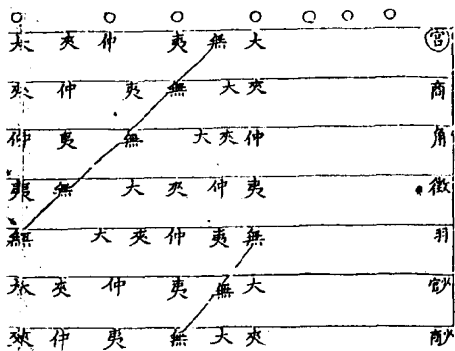 大 夾 仲 夷 無 大 宮
夾 仲 夷 無 大 夾 商
仲 夷 無 大 夾 仲 角
夷 無 大 夾 仲 夷 徵
無 大 夾 仲 夷 無 羽
大 夾 仲 夷 無 大 宮少
夾 仲 夷 無 大 夾 商少